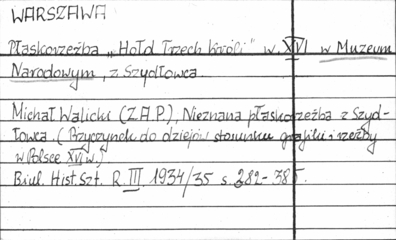 WARSZAWA
Płaskorzeźba „Hołd Trzech Króli" w. XVI w Muzeum
Narodowym, z Szydłowca.
Michał Walicki (Z.A.P.), Nieznana płaskorzeźba z Szyd-
łowca. (Przyczynek do dziejów stosunku grafiki i rzeźby
w Polsce XVI w.)
Biul. Hist. Szt. R. III. 1934/35 s. 282-385.